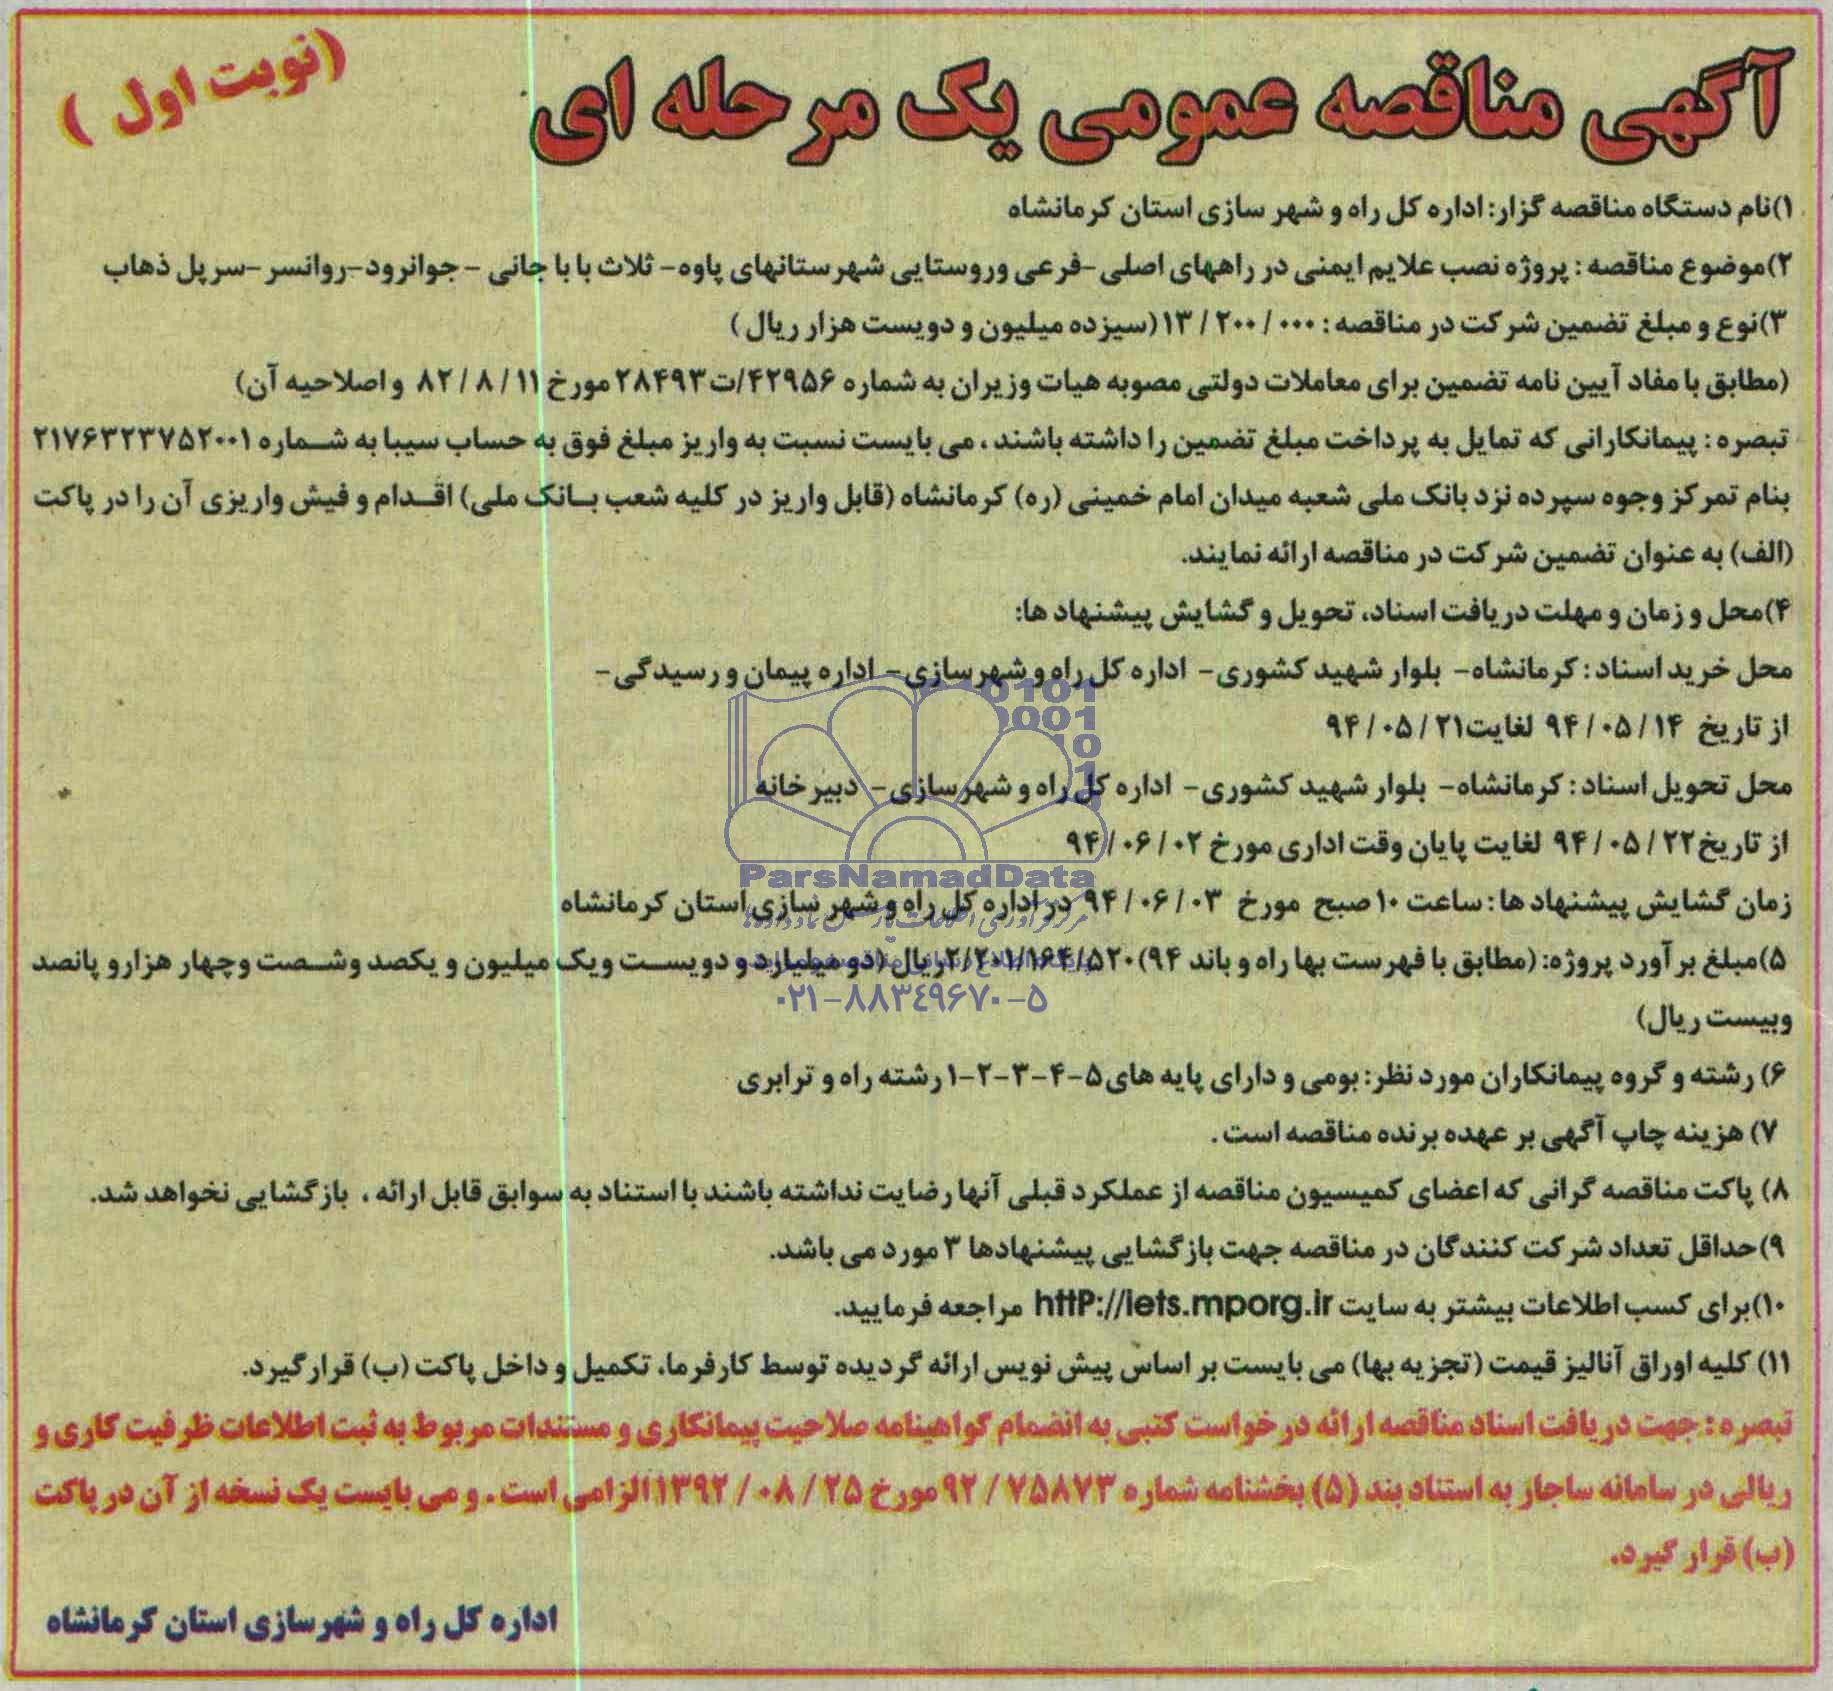 آگهی مناقصه عمومی یک مرحله ای
(نوبت اول )
۱)نام دستگاه مناقصه گزار: اداره کل راه و شهر سازی استان کرمانشاه
۲)موضوع مناقصه : پروژه نصب علایم ایمنی در راههای اصلی -فرعی وروستایی شهرستانهای پاوه- ثلاث با با جانی - جوانرود-روانسر-سرپل ذهاب
۳)نوع و مبلغ تضمین شرکت در مناقصه : ۱۳/۲۰۰/۰۰۰ (سیزده میلیون و دویست هزار ریال )
(مطابق با مفاد آیین نامه تضمین برای معاملات دولتی مصوبه هیات وزیران به شماره ۴۲۹۵۶/ت۲۸۴۹۳ مورخ ۸۲/۸/۱۱ واصلاحیه آن)
تبصره : پیمانکارانی که تمایل به پرداخت مبلغ تضمین را داشته باشند ، می بایست نسبت به واریز مبلغ فوق به حساب سیبا به شماره ۲۱۷۶۳۲۳۷۵۲۰۰۱
بنام تمرکز وجوه سپرده نزد بانک ملی شعبه میدان امام خمینی (ره) کرمانشاه (قابل واریز در کلیه شعب بانک ملی) اقدام و فیش واریزی آن را در پاکت
(الف) به عنوان تضمین شرکت در مناقصه ارائه نمایند.
۴)محل و زمان و مهلت دریافت اسناد، تحویل و گشایش پیشنهاد ها:
محل خرید اسناد : کرمانشاه- بلوار شهید کشوری- اداره کل راه و شهرسازی- اداره پیمان و رسیدگی-
از تاریخ ۹۴/۰۵/۱۴ لغایت۹۴/۰۵/۲۱
محل تحویل اسناد : کرمانشاه- بلوار شهید کشوری- اداره کل راه و شهرسازی- دبیرخانه
از تاریخ۹۴/۰۵/۲۲ لغایت پایان وقت اداری مورخ ۹۴/۰۶/۰۲
زمان گشایش پیشنهاد ها : ساعت ۱۰ صبح مورخ ۹۴/۰۶/۰۳ در اداره کل راه و شهر سازی استان کرمانشاه
۵)مبلغ بر آورد پروژه: (مطابق با فهرست بها راه و باند ۹۴) ۲/۲۰۱/۱۶۴/۵۲۰ریال (دو میلیارد و دویست ویک میلیون و یکصد وشصت وچهار هزارو پانصد
وبیست ریال)
۶) رشته و گروه پیمانکاران مورد نظر: بومی و دارای پایه های۵-۴-۳-۲-۱ رشته راه و ترابری
۷) هزینه چاپ آگهی بر عهده برنده مناقصه است .
۸) پاکت مناقصه گرانی که اعضای کمیسیون مناقصه از عملکرد قبلی آنها رضایت نداشته باشند با استناد به سوابق قابل ارائه ، بازگشایی نخواهد شد.
۹)حداقل تعداد شرکت کنندگان در مناقصه جهت بازگشایی پیشنهادها ۳ مورد می باشد.
۱۰)برای کسب اطلاعات بیشتر به سایت httP://iets.mporg.ir مراجعه فرمایید.
۱۱) کلیه اوراق آنالیز قیمت (تجزیه بها) می بایست بر اساس پیش نویس ارائه گردیده توسط کارفرما، تکمیل و داخل پاکت (ب) قرار گیرد.
تبصره : جهت دریافت اسناد مناقصه ارائه درخواست کتبی به انضمام گواهینامه صلاحیت پیمانکاری و مستندات مربوط به ثبت اطلاعات ظرفیت کاری و
ریالی در سامانه ساجار به استناد بند (۵) بخشنامه شماره ۹۲/۷۵۸۷۳ مورخ ۱۳۹۲/۰۸/۲۵ الزامی است . و می بایست یک نسخه از آن در پاکت
(ب) قرار گیرد.
اداره کل راه و شهرسازی استان کرمانشاه
ParsNamadData
۰۲۱-۸۸۳۴۹۶۷۰-۵